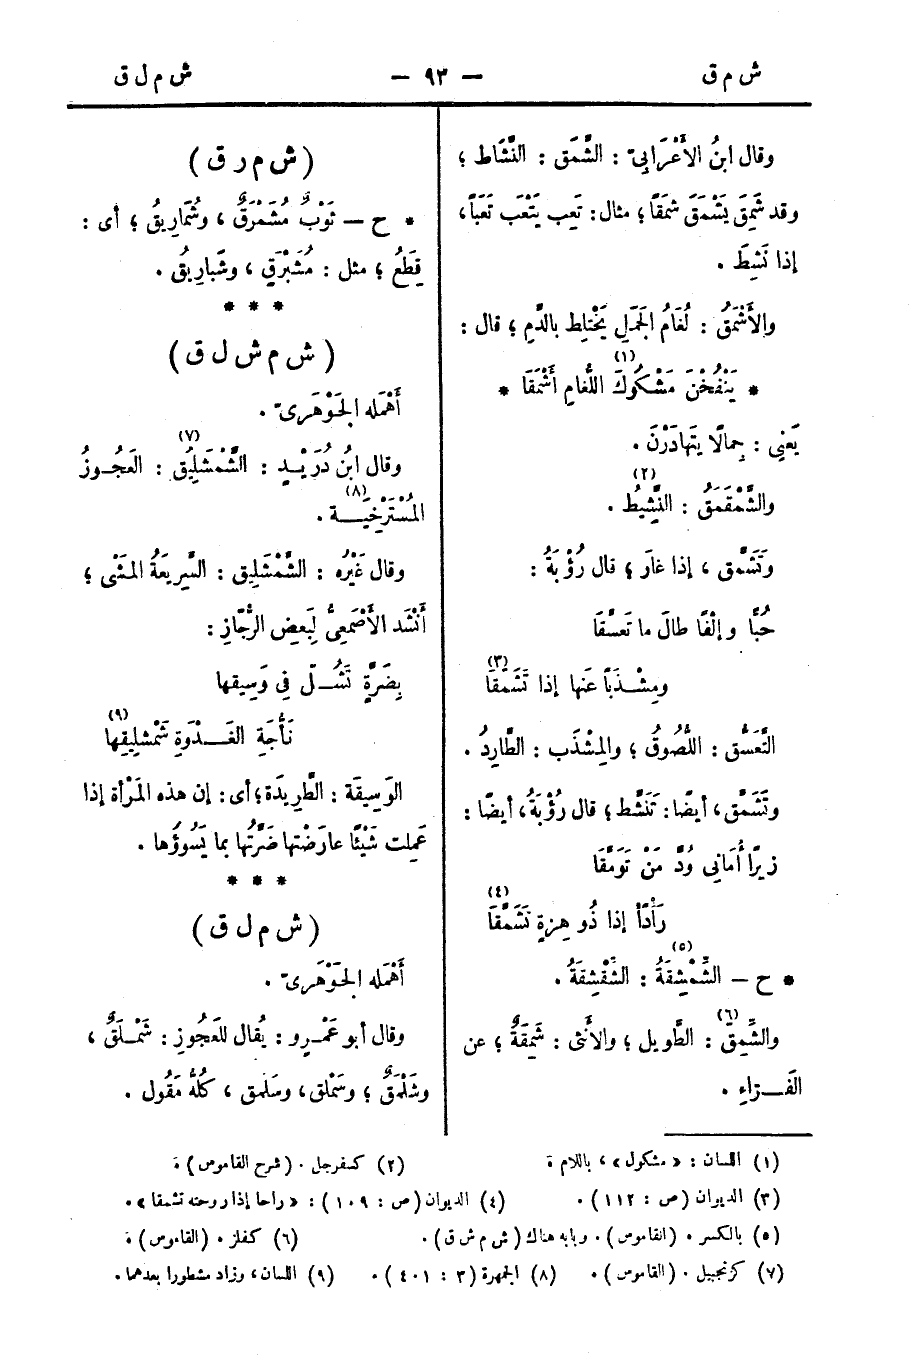 ش م ق — ٩٣ — ش م ل ق
وقال ابنُ الأَعْرَابِىّ : الشَّمَق : النَّشَاط ؛
وقد شَمِقَ يَشْمَقَ شَمَقًا ؛ مثال : تَعِب يَتْعَب تَعَبًا ،
إذا نَشِطَ .
والأَشْمَقُ : لُغَامُ الجَمَلِ يَخْتلِط بالدَّمِ ؛ قال :
* يَنْفُخْنَ مَشْكُوكَ (١) اللُّغامِ أَشْمَقَا *
يَعْنِى : جِمالًا يَتَهادَرْنَ .
والشَّمَقْمَقُ (٢) : النَّشِيطُ .
وتَشَمَّق ، إذا غارَ ؛ قال رُؤْبَةُ :
حُبًّا و إلْفًا طالَ ما تَعسَّقَا
ومِشْـذَبًا عَنها إذا تَشَمَّقَا (٣)
التَّعَسُّق : اللُّصُوقُ ؛ والمِشْذَب : الطَّارِدُ .
وتَشَمَّق ، أيضًا : تَنَشَّط ؛ قال رُؤْبَةُ ، أيضًا :
زيرًا أُمَانِى وُدَّ مَنْ تَوَمَّقَا
رَأْدًا إذا ذُو هِزةٍ تَشَمَّقَا (٤)
* ح — الشِّمْشِقَةُ (٥) : الشِّقْشِقَةُ .
والشِّمِقّ (٦) : الطَّويل ؛ والأنثى : شِمِقَّةٌ ؛ عن
الفَـرّاءِ .
( ش م ر ق )
* ح — ثَوْبٌ مُشَمْرَقٌ ، وشُمَارِيقُ ؛ أى :
قِطَعٌ ؛ مثل : مُشَبْرَقٍ ، وشَبارِيقُ .
* * *
( ش م ش ل ق )
أَهْمَله الجَوْهَرِىّ .
وقال ابنُ دُرَيْـدٍ : الشَّمْشَلِيقُ (٧) : العَجُـوزُ
المُسْتَرْخِيَـة (٨) .
وقال غَيْرُه : الشَّمْشَلِيق : السَّرِيعَةُ المَشْى ؛
أَنْشَد الأَصْمَعِىُّ لِبَعضِ الرُّجَّازِ :
بِضَرَّةٍ تَشُـلّ فى وَسِيقها
نَأْجَةِ الغَـدْوَةِ شَمْشَلِيقِها (٩)
الوَسِيقَة : الطَّرِيدَة ؛ أى : إن هذه المَرْأة إذا
عَمِلت شَيْئًا عارَضَتها ضَرَّتُها بما يَسُوؤُها .
* * *
( ش م ل ق )
أَهْمَله الجَوْهَرِىّ .
وقال أبو عَمْـرٍو : يُقال للعَجُوزِ : شَمْـلَقٌ ،
وشَلْمَقٌ ؛ وسَمْلق ، وسَلمق ، كُلُّه مَقُول .
(١) اللسان : « مشكول » ، باللام . (٢) كسفرجل . (شرح القاموس) .
(٣) الديوان (ص : ١١٢) . (٤) الديوان (ص : ١٠٩) : « راحا إذا روحته تشمقا » .
(٥) بالكسر . (القاموس) . وبابه هناك (ش م ش ق) . (٦) كفلز . (القاموس) .
(٧) كزنجبيل . (القاموس) . (٨) الجمهرة (٣ : ٤٠١) . (٩) اللسان ، وزاد مشطورا بعدهما .